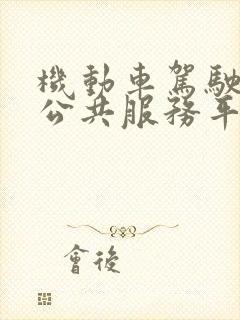 機動車駕駛
公共服務平
會後